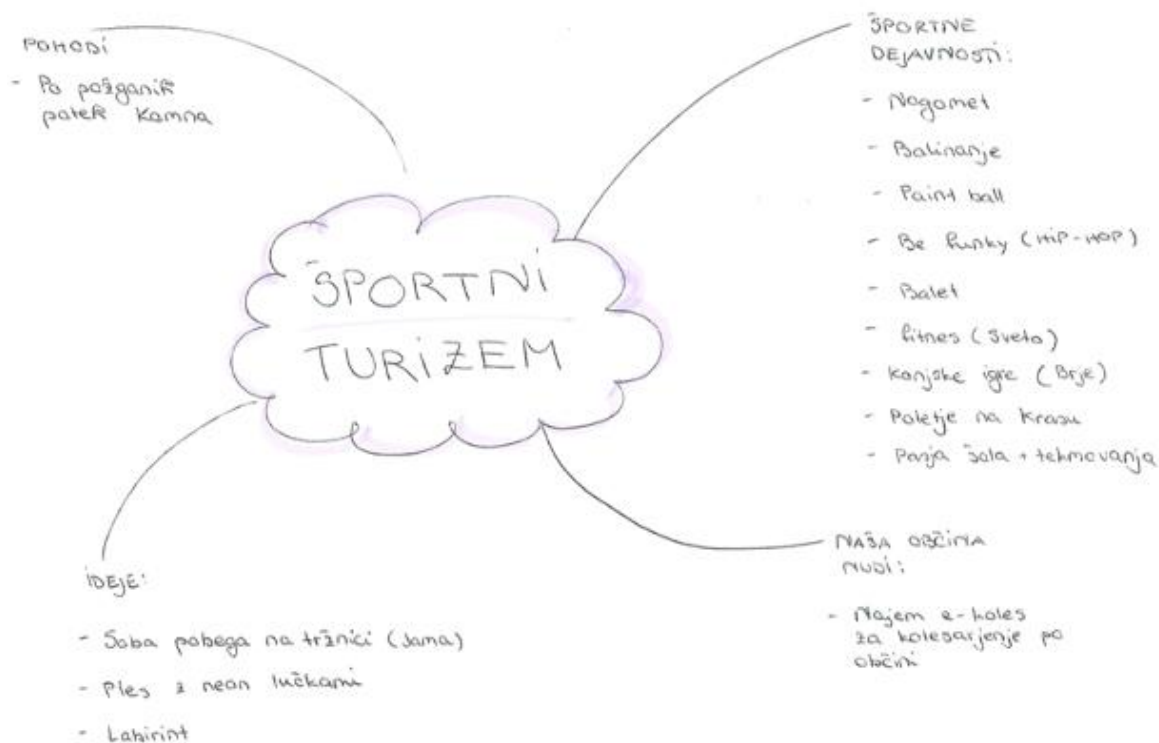 POHODI
- Po požganih
poteh Komna
ŠPORTNI
TURIZEM
ŠPORTNE
DEJAVNOSTI:
- Nogomet
- Balinanje
- Paint ball
- Be funky (HIP-HOP)
- Balet
- fitnes (Sveto)
- Konjske igre (Brje)
- Poletje na Krasu
- Pasja šola + tekmovanja
NAŠA OBČINA
NUDI:
- Najem e-koles
za kolesarjenje po
občini
IDEJE:
- Soba pobega na tržnici (Jama)
- Ples z neon lučkami
- Labirint